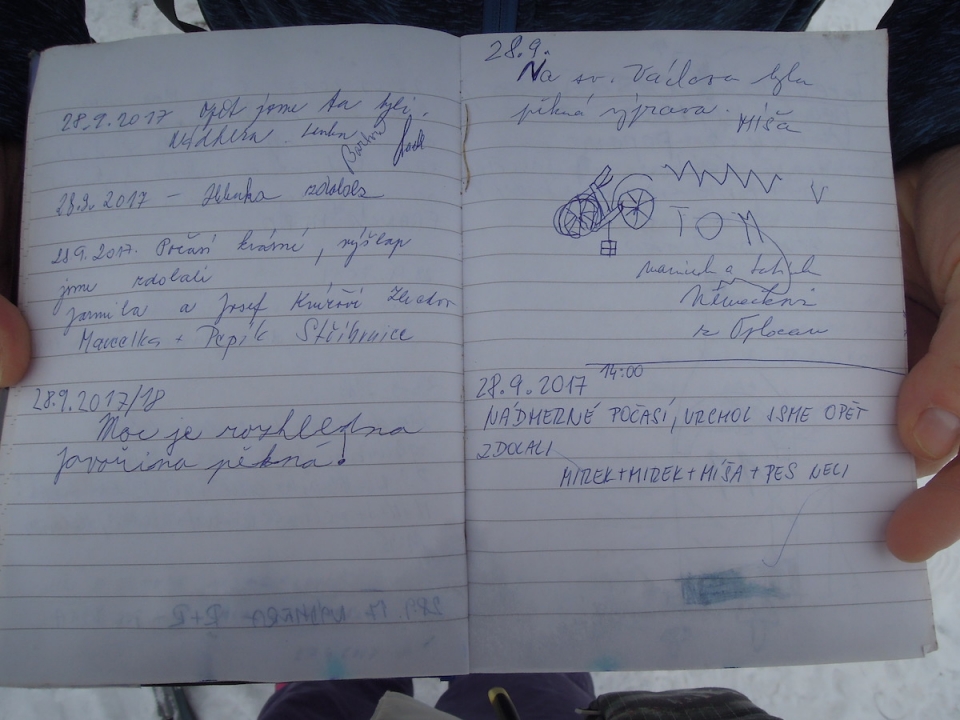 28.9.2017 opět jsme tu byli,
Nádhera. Lenka
28.9.2017 – zdolala
28.9.2017. Počasí krásné, výšlap
jsme zdolali
Jarmila a Josef
Marcelka + Pepík Stříbrnice
28.9.2017/18
Moc je rozhledna
Javořina pěkná.
28.9.
Na sv. Václava byla
pěkná výprava.
MÍŠA
V
TOM
a
z
28.9.2017 14:00
NÁDHERNÉ POČASÍ, VRCHOL JSME OPĚT
ZDOLALI
MIREK+MIREK+MÍŠA+PES NELI